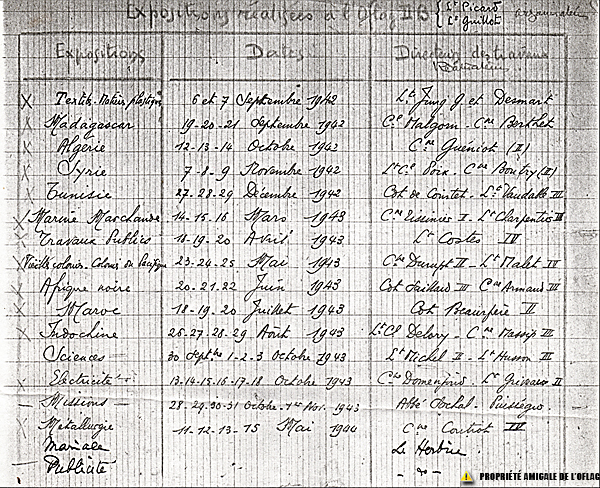 Expositions réalisées à l'Oflag II B { Lt Picard
Lt Guillot organisation
Expositions Dates Directeurs des travaux
Réalisation
Textiles. Matières plastiques 6 et 7 Septembre 1942 Lt Jung J et Desmart
Madagascar 19-20-21 Septembre 1942 Cne Malgorn - Cne Berthet
Algérie 12-13-14 Octobre 1942 Cne Guéniot (II)
Syrie 7-8-9 Novembre 1942 Lt Cl Poix - Cne Boutry (II)
Tunisie 27-28-29 Décembre 1942 Cdt de Cointet - Lt Vaudable III
Marine Marchande 14-15-16 Mars 1943 Cne II - Lt Charpentier III
Travaux Publics 18-19-20 Avril 1943 Lt Costes IV
Vieilles colonies - Colonies du Pacifique 23-24-25 Mai 1943 Cne Durupt II - Lt Malet IV
Afrique noire 20-21-22 Juin 1943 Cdt III Cne Armand III
Maroc 18-19-20 Juillet 1943 Cdt Beaurpère II
Indochine 26-27-28-29 Août 1943 Lt Cl Delory - Cne Massip III
Sciences 30 Septbre 1-2-3 Octobre 1943 Lt Michel II - Lt Husson III
Electricité 13-14-15-16-17-18 Octobre 1943 Cne - Lt II
Missions 28-29-30-31 Octobre - 1er Nov. 1943 Abbé Puisségro
Métallurgie 11-12-13-15 Mai 1944 Cne III
Mariale Le
Publicité - do -
PROPRIÉTÉ AMICALE DE L'OFLAG